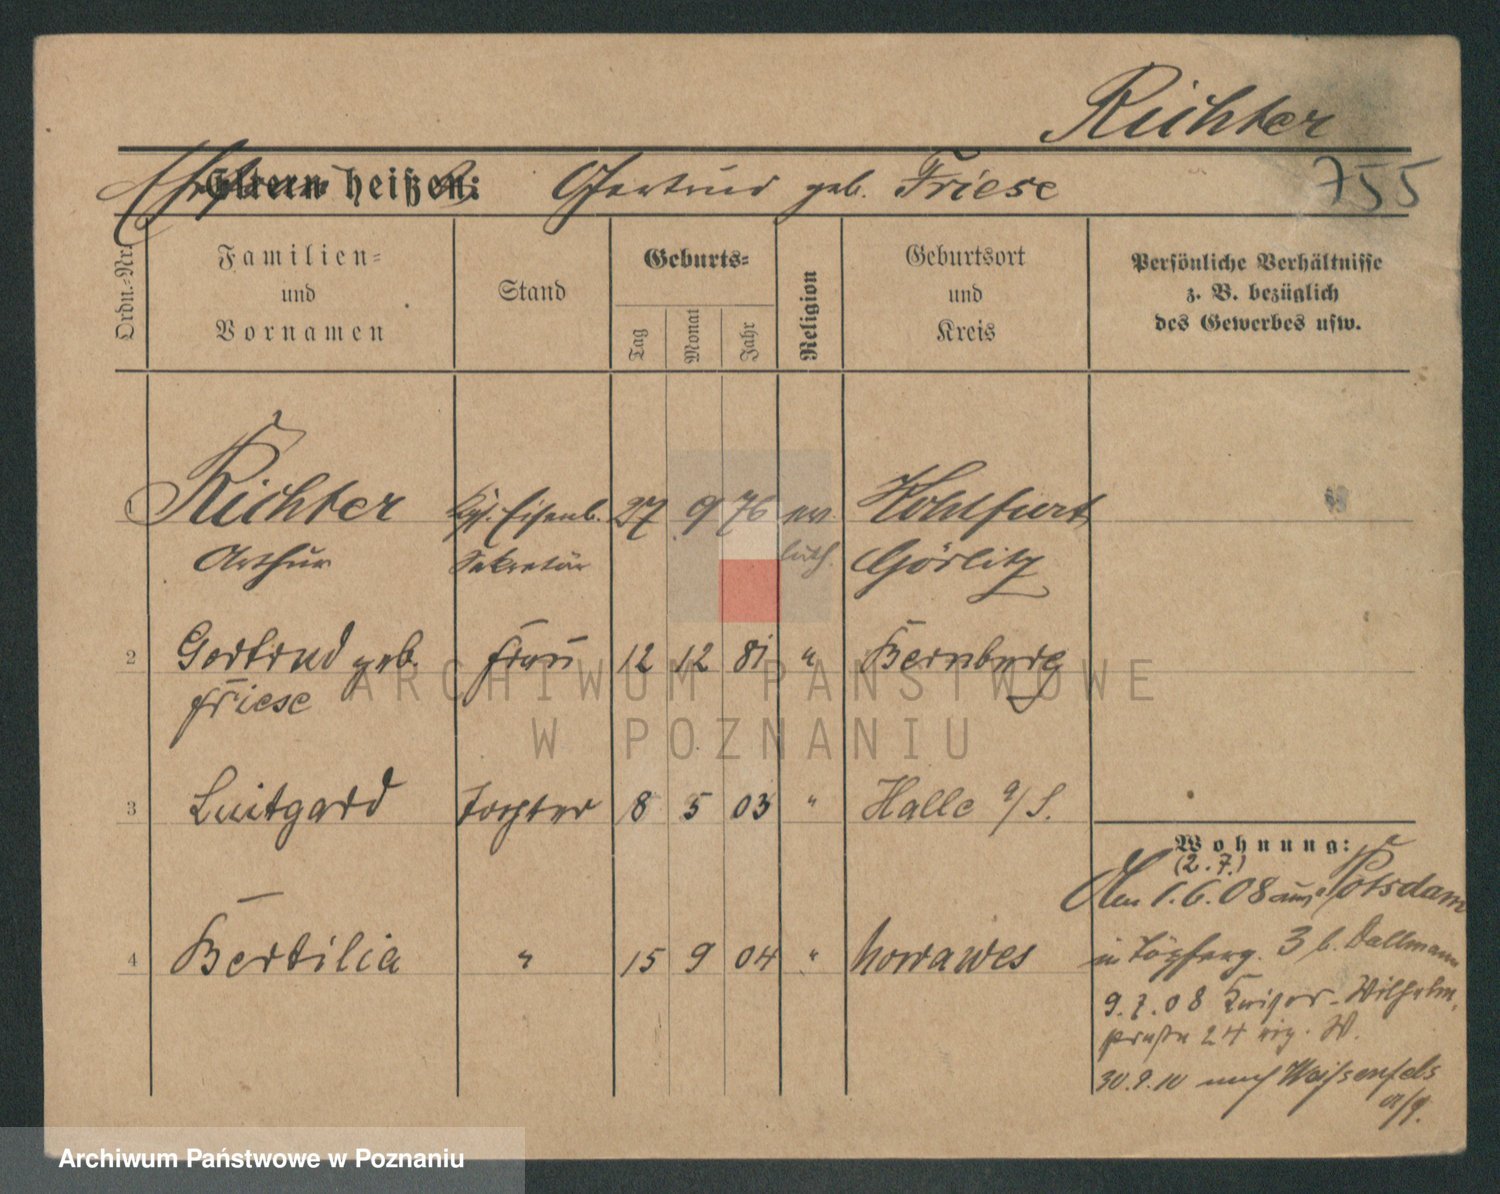 Richter
Eltern heißen: Gertrud geb. Friese 755
Ordn.-Nr.
Familien-
und
Vornamen
Stand
Geburts-
Tag
Monat
Jahr
Religion
Geburtsort
und
Kreis
Persönliche Verhältnisse
z. B. bezüglich
des Gewerbes usw.
1 Richter Kgl. Eisenb. 27 9 76 ev. Kohlfurt
Arthur Sekretär luth. Görlitz
2 Gertrud geb. Frau 12 12 81 " Bernburg
Friese
3 Luitgard Tochter 8 5 03 " Halle a/S.
4 Bertilia " 15 9 04 " Nowawes
Wohnung:
(2.7.)
1.6.08 aus Potsdam
in Töpferg. 3 b. Dallmann
9.7.08 Kaiser-Wilhelm-
straße 24 eig. W.
30.9.10 nach Weissenfels
ARCHIWUM PAŃSTWOWE
W POZNANIU
Archiwum Państwowe w Poznaniu